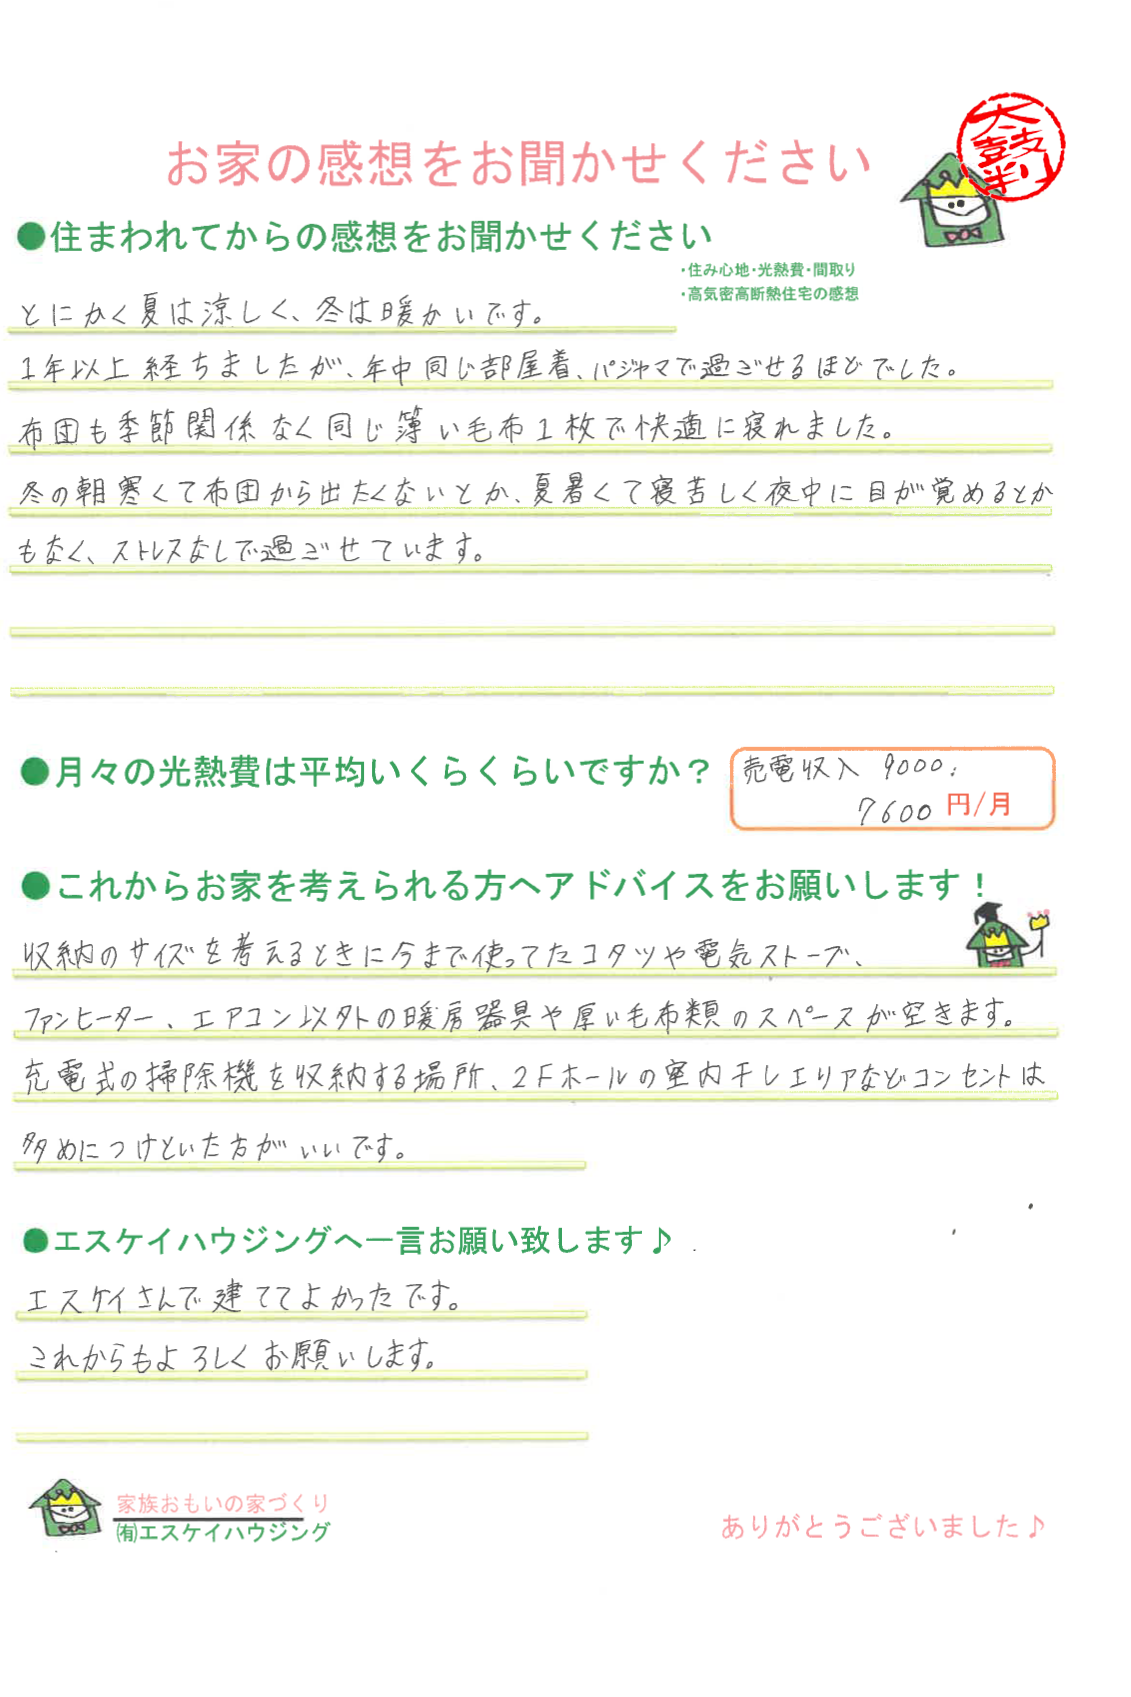 太鼓判
お家の感想をお聞かせください
●住まわれてからの感想をお聞かせください
・住み心地・光熱費・間取り
・高気密高断熱住宅の感想
とにかく夏は涼しく、冬は暖かいです。
1年以上経ちましたが、年中同じ部屋着、パジャマで過ごせるほどでした。
布団も季節関係なく同じ簿い毛布1枚で快適に寝れました。
冬の朝寒くて布団から出たくないとか、夏暑くて寝苦しく夜中に目が覚めるとか
もなく、ストレスなしで過ごせています。
●月々の光熱費は平均いくらくらいですか？
売電収入 9000.
7600 円/月
●これからお家を考えられる方へアドバイスをお願いします！
収納のサイズを考えるときに今まで使ってたコタツや電気ストーブ、
ファンヒーター、エアコン以外の暖房器具や厚い毛布類のスペースが空きます。
充電式の掃除機を収納する場所、2Fホールの室内干しエリアなどコンセントは
多めにつけといた方がいいです。
●エスケイハウジングへ一言お願い致します♪
エスケイさんで建ててよかったです。
これからもよろしくお願いします。
家族おもいの家づくり
㈲エスケイハウジング
ありがとうございました♪